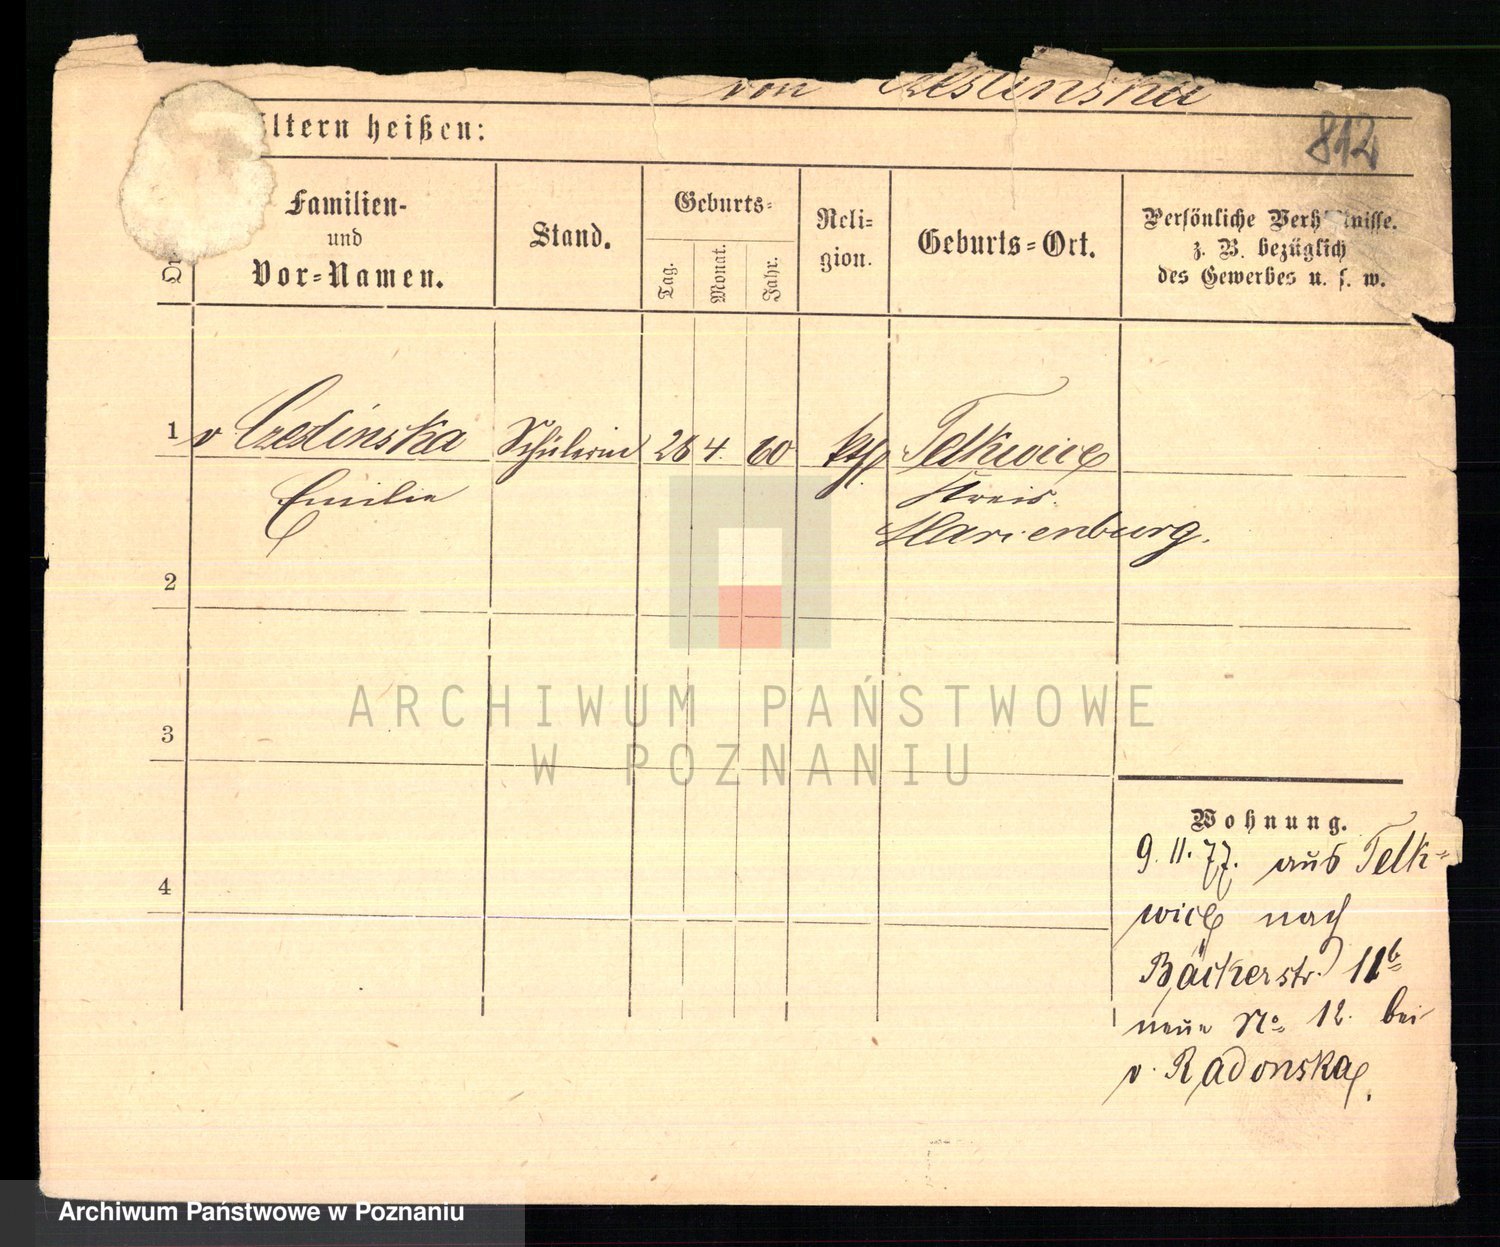 von Czeslinska
Eltern heißen:
812
Familien-
und
Vor-Namen.
Stand.
Geburts-
Tag.
Monat.
Jahr.
Reli-
gion.
Geburts-Ort.
Persönliche Verhältnisse.
z. B. bezüglich
des Gewerbes u. s. w.
1 v Czeslinska Schülerin 26 4. 60 kth. Telkwice
Emilie Kreis
Marienburg.
2
3
4
Wohnung.
9. 11. 77. aus Telk-
wice nach
Bäckerstr. 11b
neue No 12. bei
v. Radonska.
ARCHIWUM PAŃSTWOWE
W POZNANIU
Archiwum Państwowe w Poznaniu